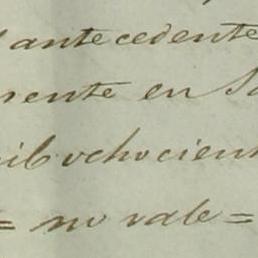 antecedente
rente en Sa
il ochocient
= no vale =